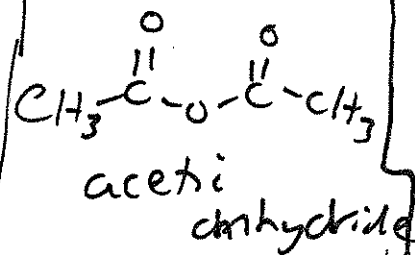 O O
|| ||
CH₃-C-O-C-CH₃
aceti
anhydride